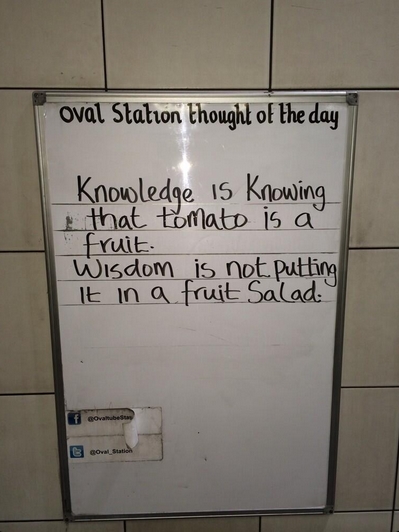 Oval Station thought of the day
Knowledge is Knowing
that tomato is a
fruit.
Wisdom is not putting
it in a fruit Salad.
f
@OvaltubeStat
@Oval_Station